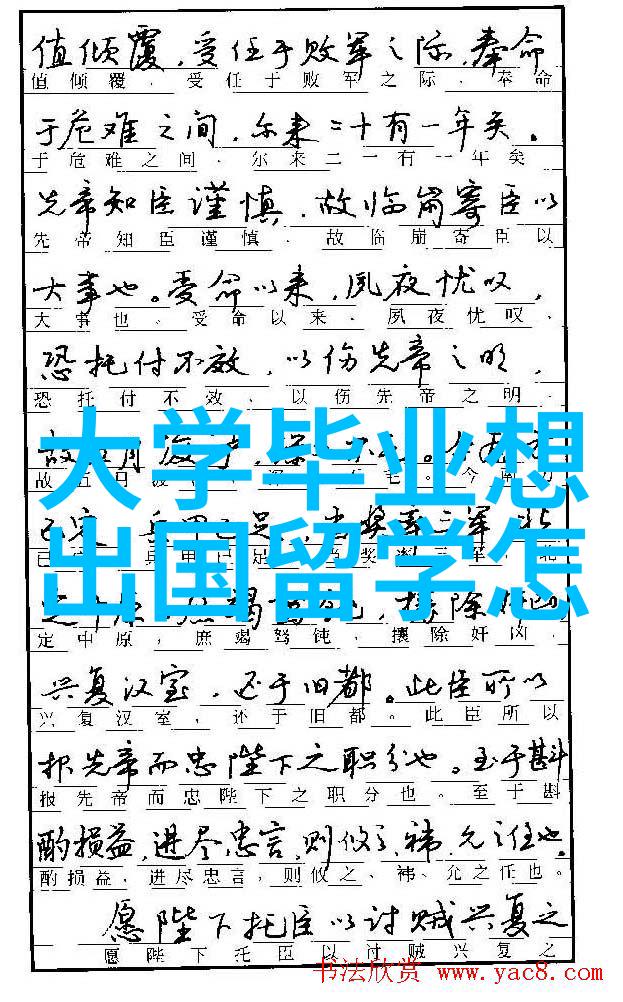 值倾覆，受任于败军之际，奉命
值倾覆，受任于败军之际，奉命
于危难之间，尔来二十有一年矣。
于危难之间，尔来二一有一年矣
先帝知臣谨慎，故临崩寄臣以
先帝知臣谨慎，故临崩寄臣以
大事也。受命以来，夙夜忧叹，
大事也。受命以来，夙夜忧叹，
恐托付不效，以伤先帝之明，
恐托付不效，以伤先帝之明，
大学毕业想
故 月渡
故五月渡 毛。今南方
已定 兵甲已足，当奖率三军 北
已 兵甲已足 奖率三军 北
出国留学怎
定中原 竭 钝，攘除奸凶
定中原，庶竭驽钝，攘除奸凶，
兴复汉室，还于旧都。此臣所以
兴复汉室，还于旧都。此臣所以
报先帝而忠陛下之职分也。至于斟
报先帝而忠陛下之职分也。至于斟
酌损益，进尽忠言，则攸之、祎、允之任也。
酌损益，进尽忠言，则攸之、祎、允之任也。
愿陛下托臣以讨贼兴复之
愿陛下托臣以讨贼兴复之
书法欣赏 www.yac8.com